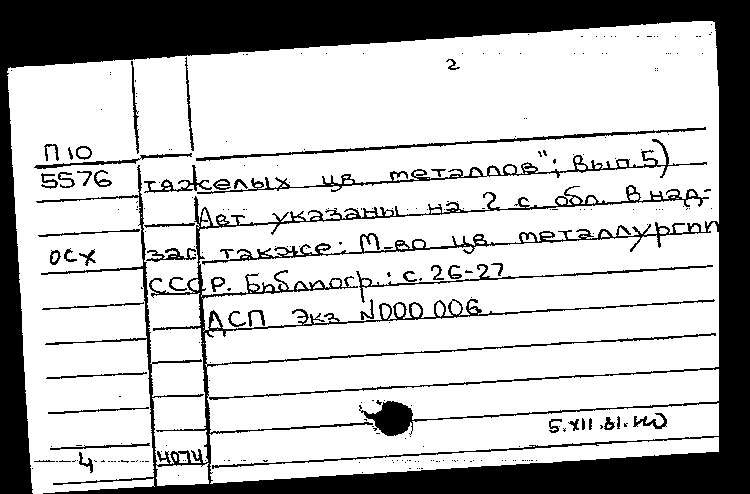 2
П10
5576 тяжелых цв. металлов"; Вып. 5)
Авт. указаны на 2 с. обл. В над-
ОСХ заг. также: М-во цв. металлургии
СССР. Библиогр.: с. 26-27
ДСП Экз N000 006.
5.XII.81.
4 4074